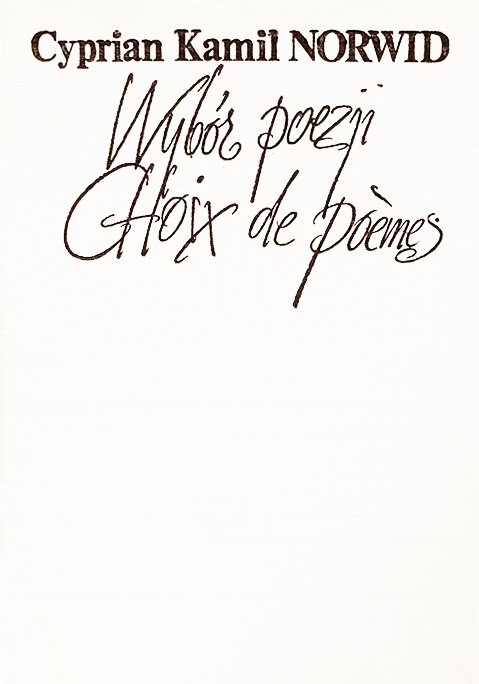 Cyprian Kamil NORWID
Wybór poezji
Choix de poèmes